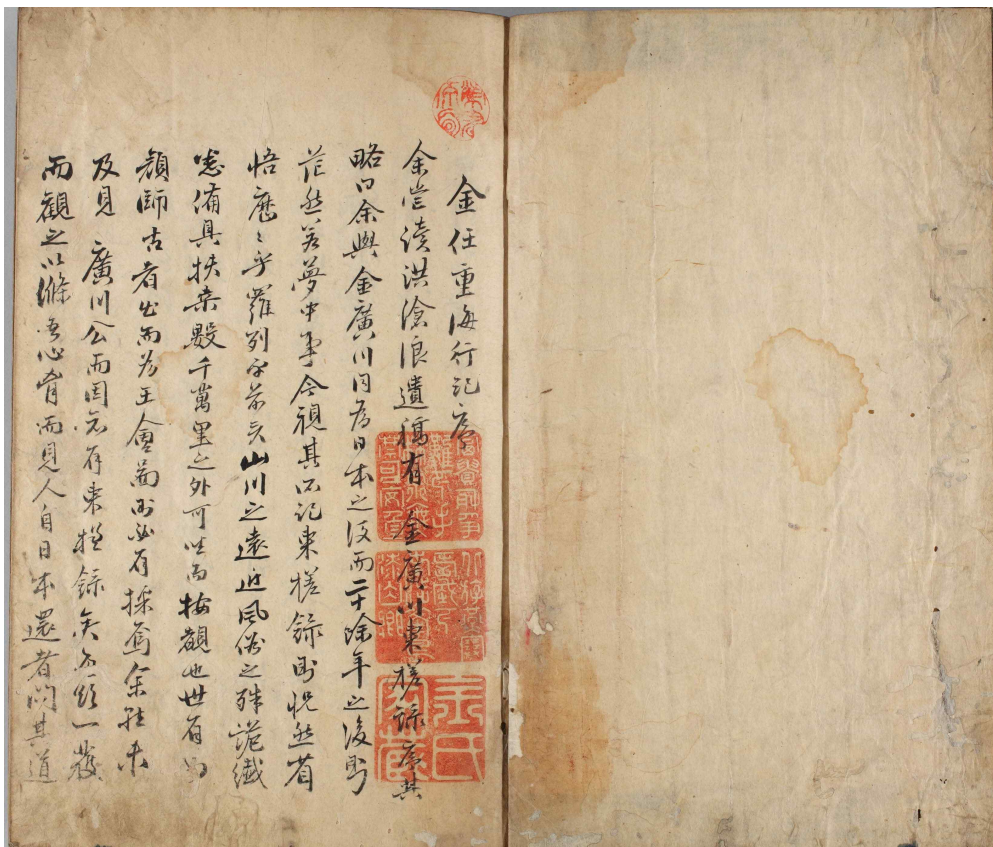 金任重海行記序
余嘗讀洪滄浪遺稿有 金廣川東槎錄序其
略曰余與金廣川同爲日本之役而二十餘年之後則
茫然若夢中事今視其所記東槎錄則怳然省
悟歷〻乎羅列而前矣山川之遠近風俗之殊詭纖
悉備具扶桑數千萬里之外可坐而按觀也世有如
顔師古者出而爲王會啚則必有採焉余雖未
及見 廣川公而因亦有東槎錄矣亦願一獲
而觀之以滌吾心胷而見人自日本還者問其道
金氏